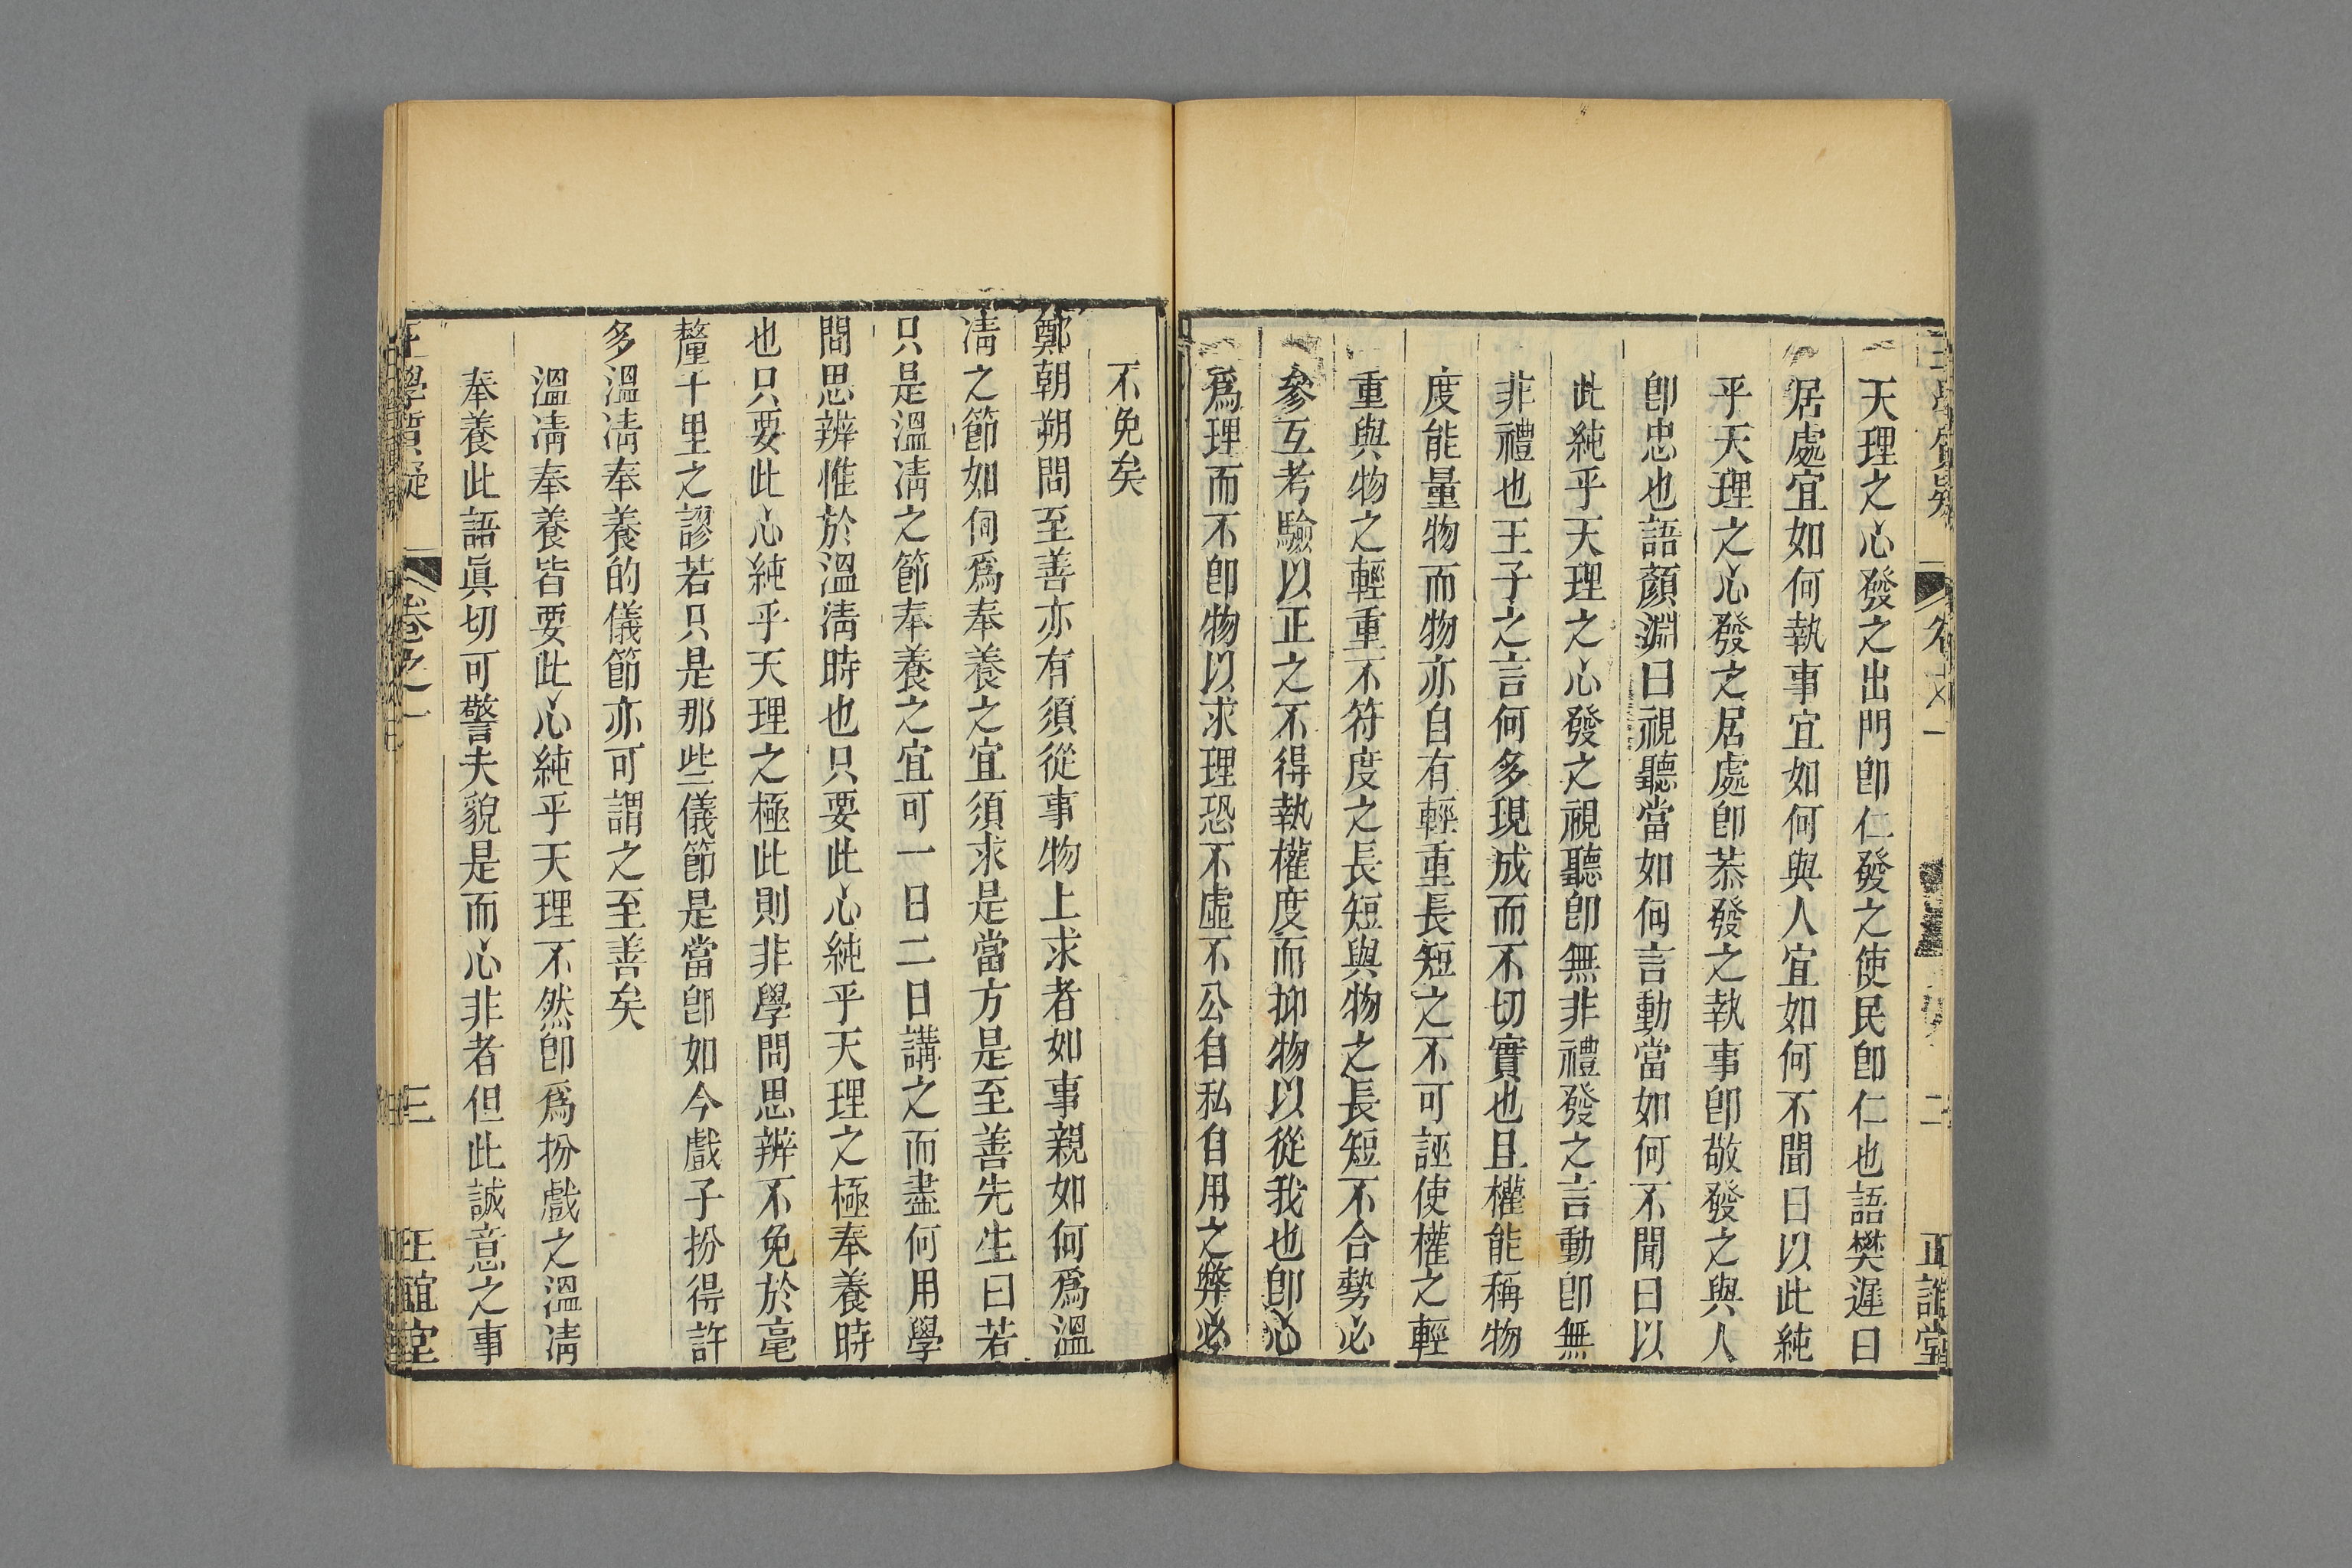 天理之心發之出門卽仁發之使民卽仁也語樊遲曰
居處宜如何執事宜如何與人宜如何不聞曰以此純
乎天理之心發之居處卽恭發之執事卽敬發之與人
卽忠也語顏淵曰視聽當如何言動當如何不聞曰以
此純乎天理之心發之視聽卽無非禮發之言動卽無
非禮也王子之言何多現成而不切實也且權能稱物
度能量物而物亦自有輕重長短之不可誣使權之輕
重與物之輕重不符度之長短與物之長短不合勢必
參互考驗以正之不得執權度而抑物以從我也卽心
爲理而不卽物以求理恐不虛不公自私自用之弊必
不免矣
鄭朝朔問至善亦有須從事物上求者如事親如何爲溫
凊之節如何爲奉養之宜須求是當方是至善先生曰若
只是溫凊之節奉養之宜可一日二日講之而盡何用學
問思辨惟於溫凊時也只要此心純乎天理之極奉養時
也只要此心純乎天理之極此則非學問思辨不免於毫
釐千里之謬若只是那些儀節是當卽如今戲子扮得許
多溫凊奉養的儀節亦可謂之至善矣
溫凊奉養皆要此心純乎天理不然卽爲扮戲之溫凊
奉養此語眞切可警夫貌是而心非者但此誠意之事
王學質疑 卷之一 三 正誼堂